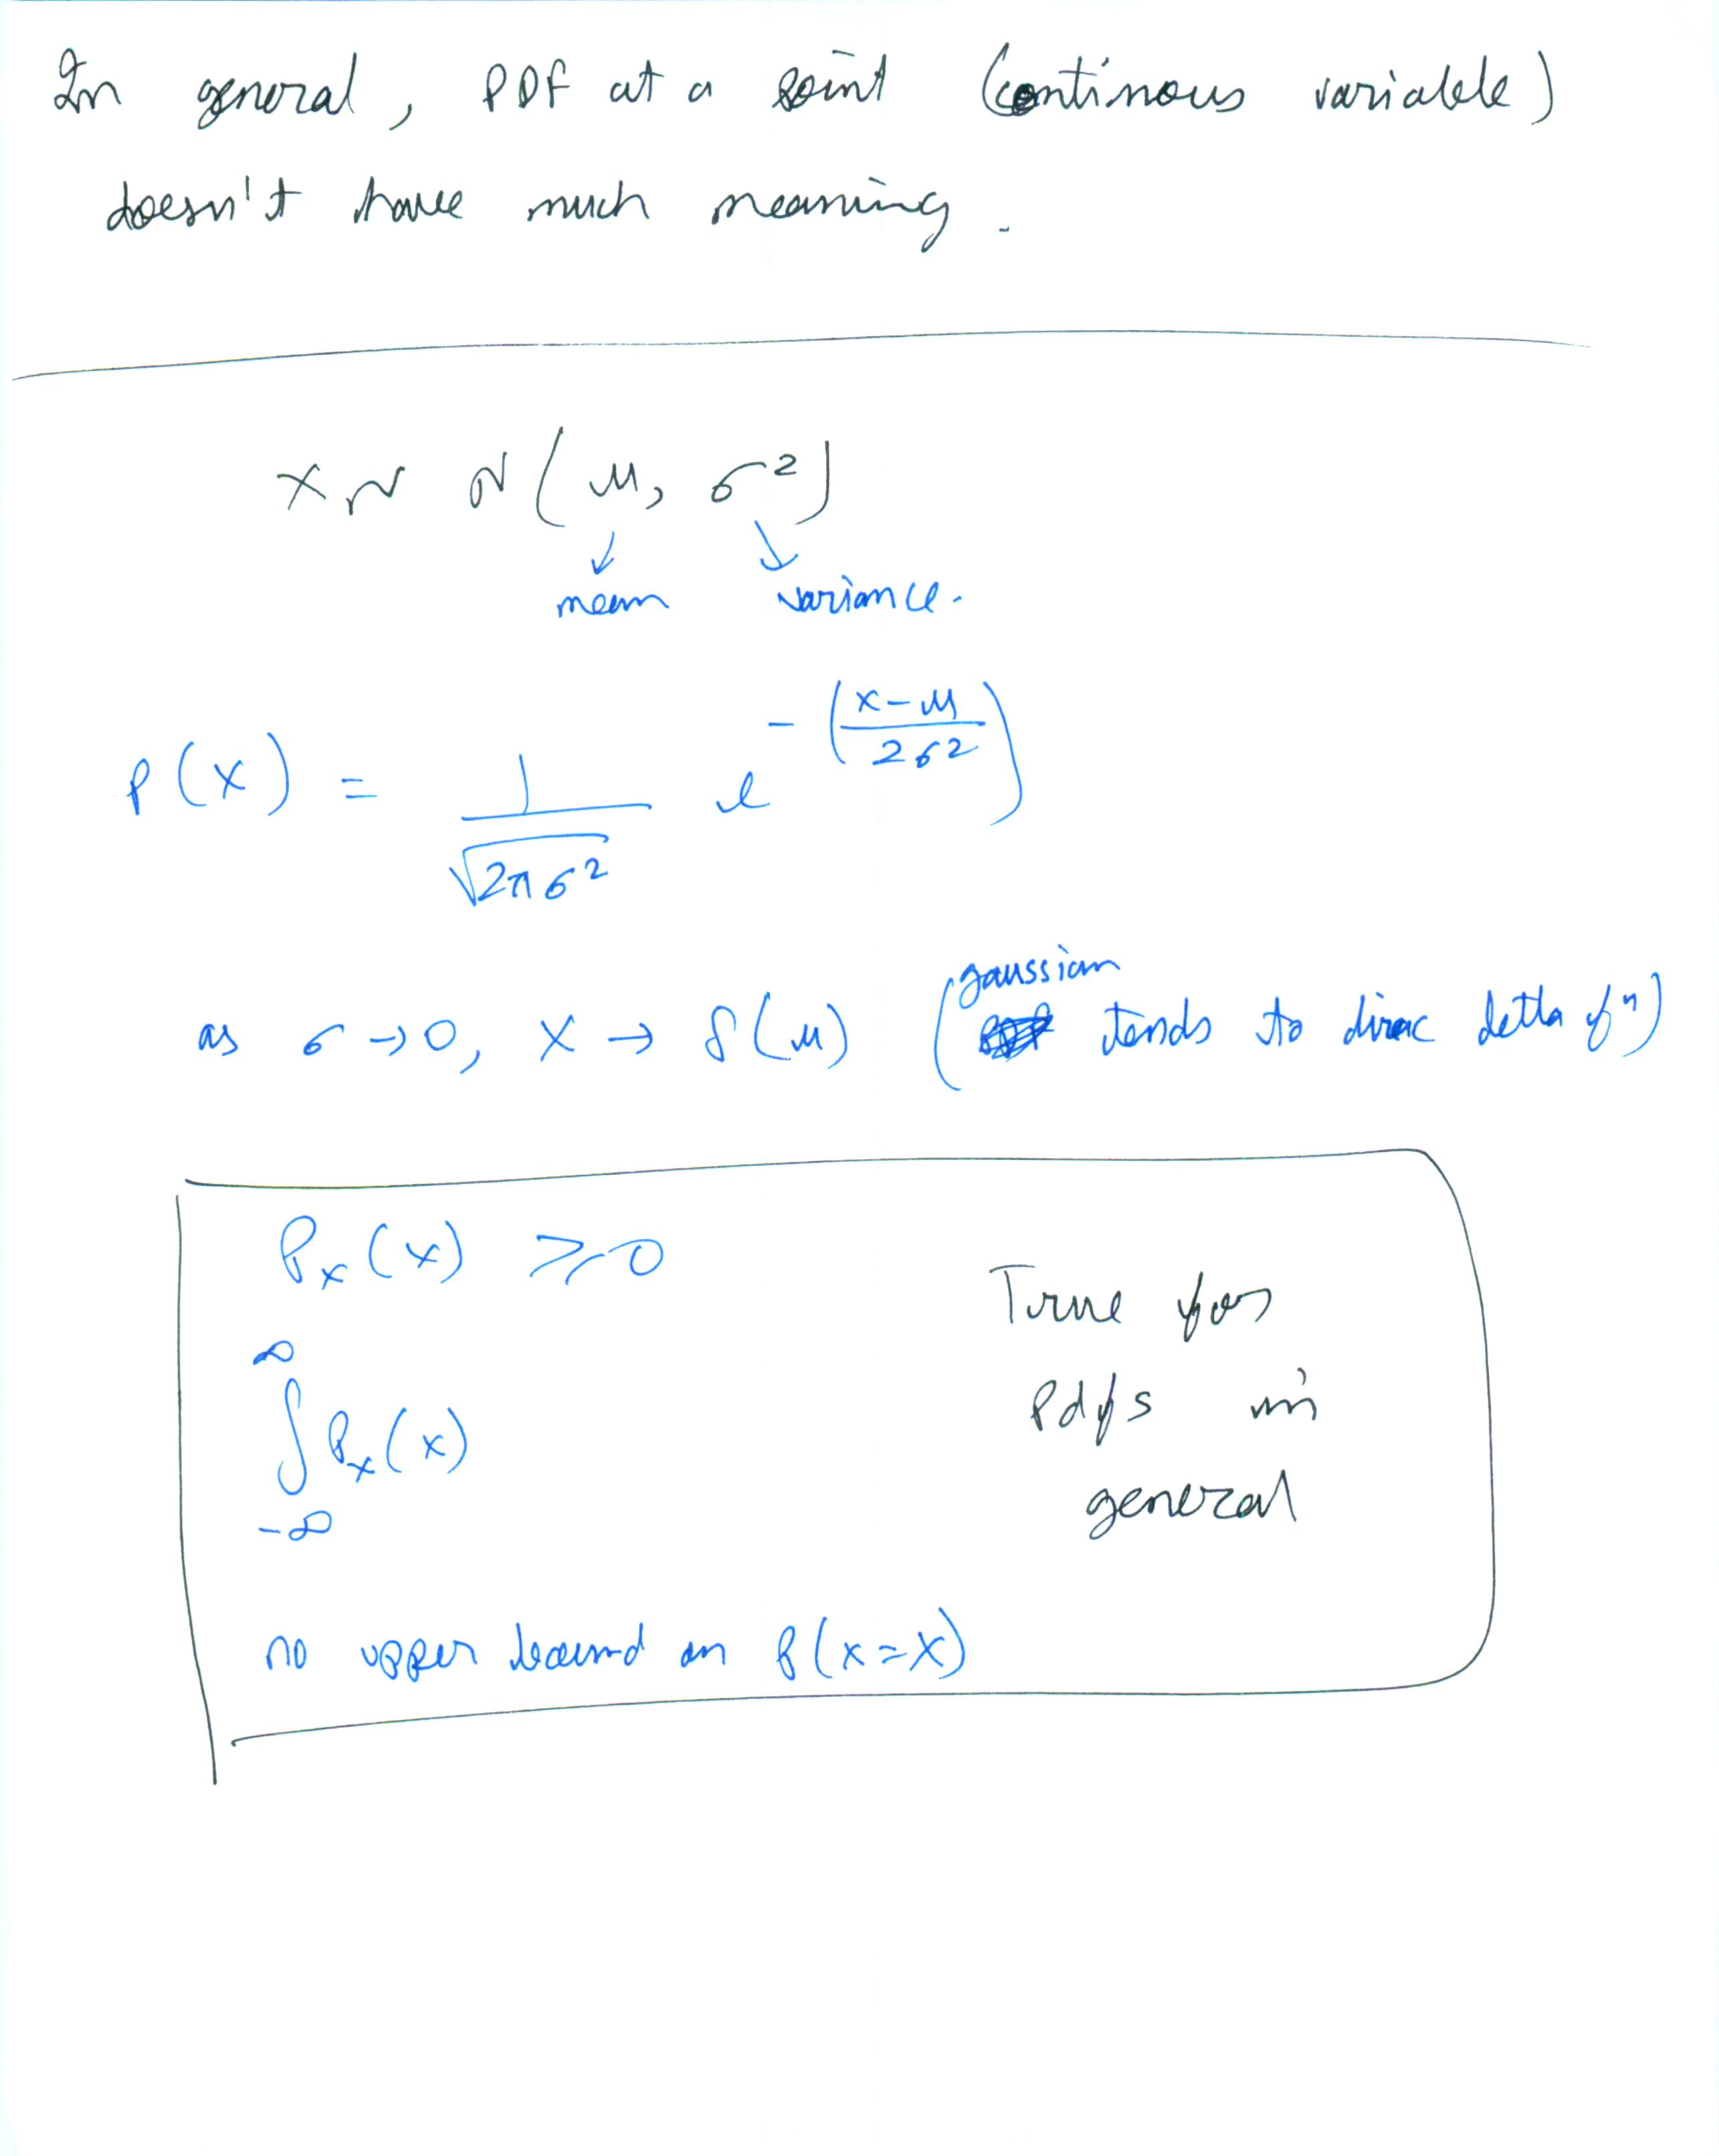 In general, PDF at a point (continous variable)
doesn't have much meaning.
X ~ N(μ, σ²)
mean variance.
P(x) = 1/√2πσ² e^-(x-μ/2σ²)
as σ→0, X → δ(μ) (gaussian tends to dirac delta fⁿ)
Pₓ(x) ≥ 0
∞
∫Pₓ(x)
-∞
True for
Pdfs in
general
no upper bound on P(x=X)